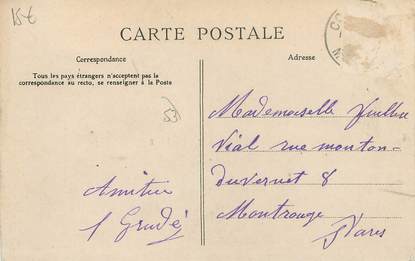 15€
CARTE POSTALE
Correspondance
Adresse
Tous les pays étrangers n'acceptent pas la
correspondance au recto, se renseigner à la Poste
53
Mademoiselle
Vial rue mouton-
duvernet 8
Montrouge
Paris
Amitié